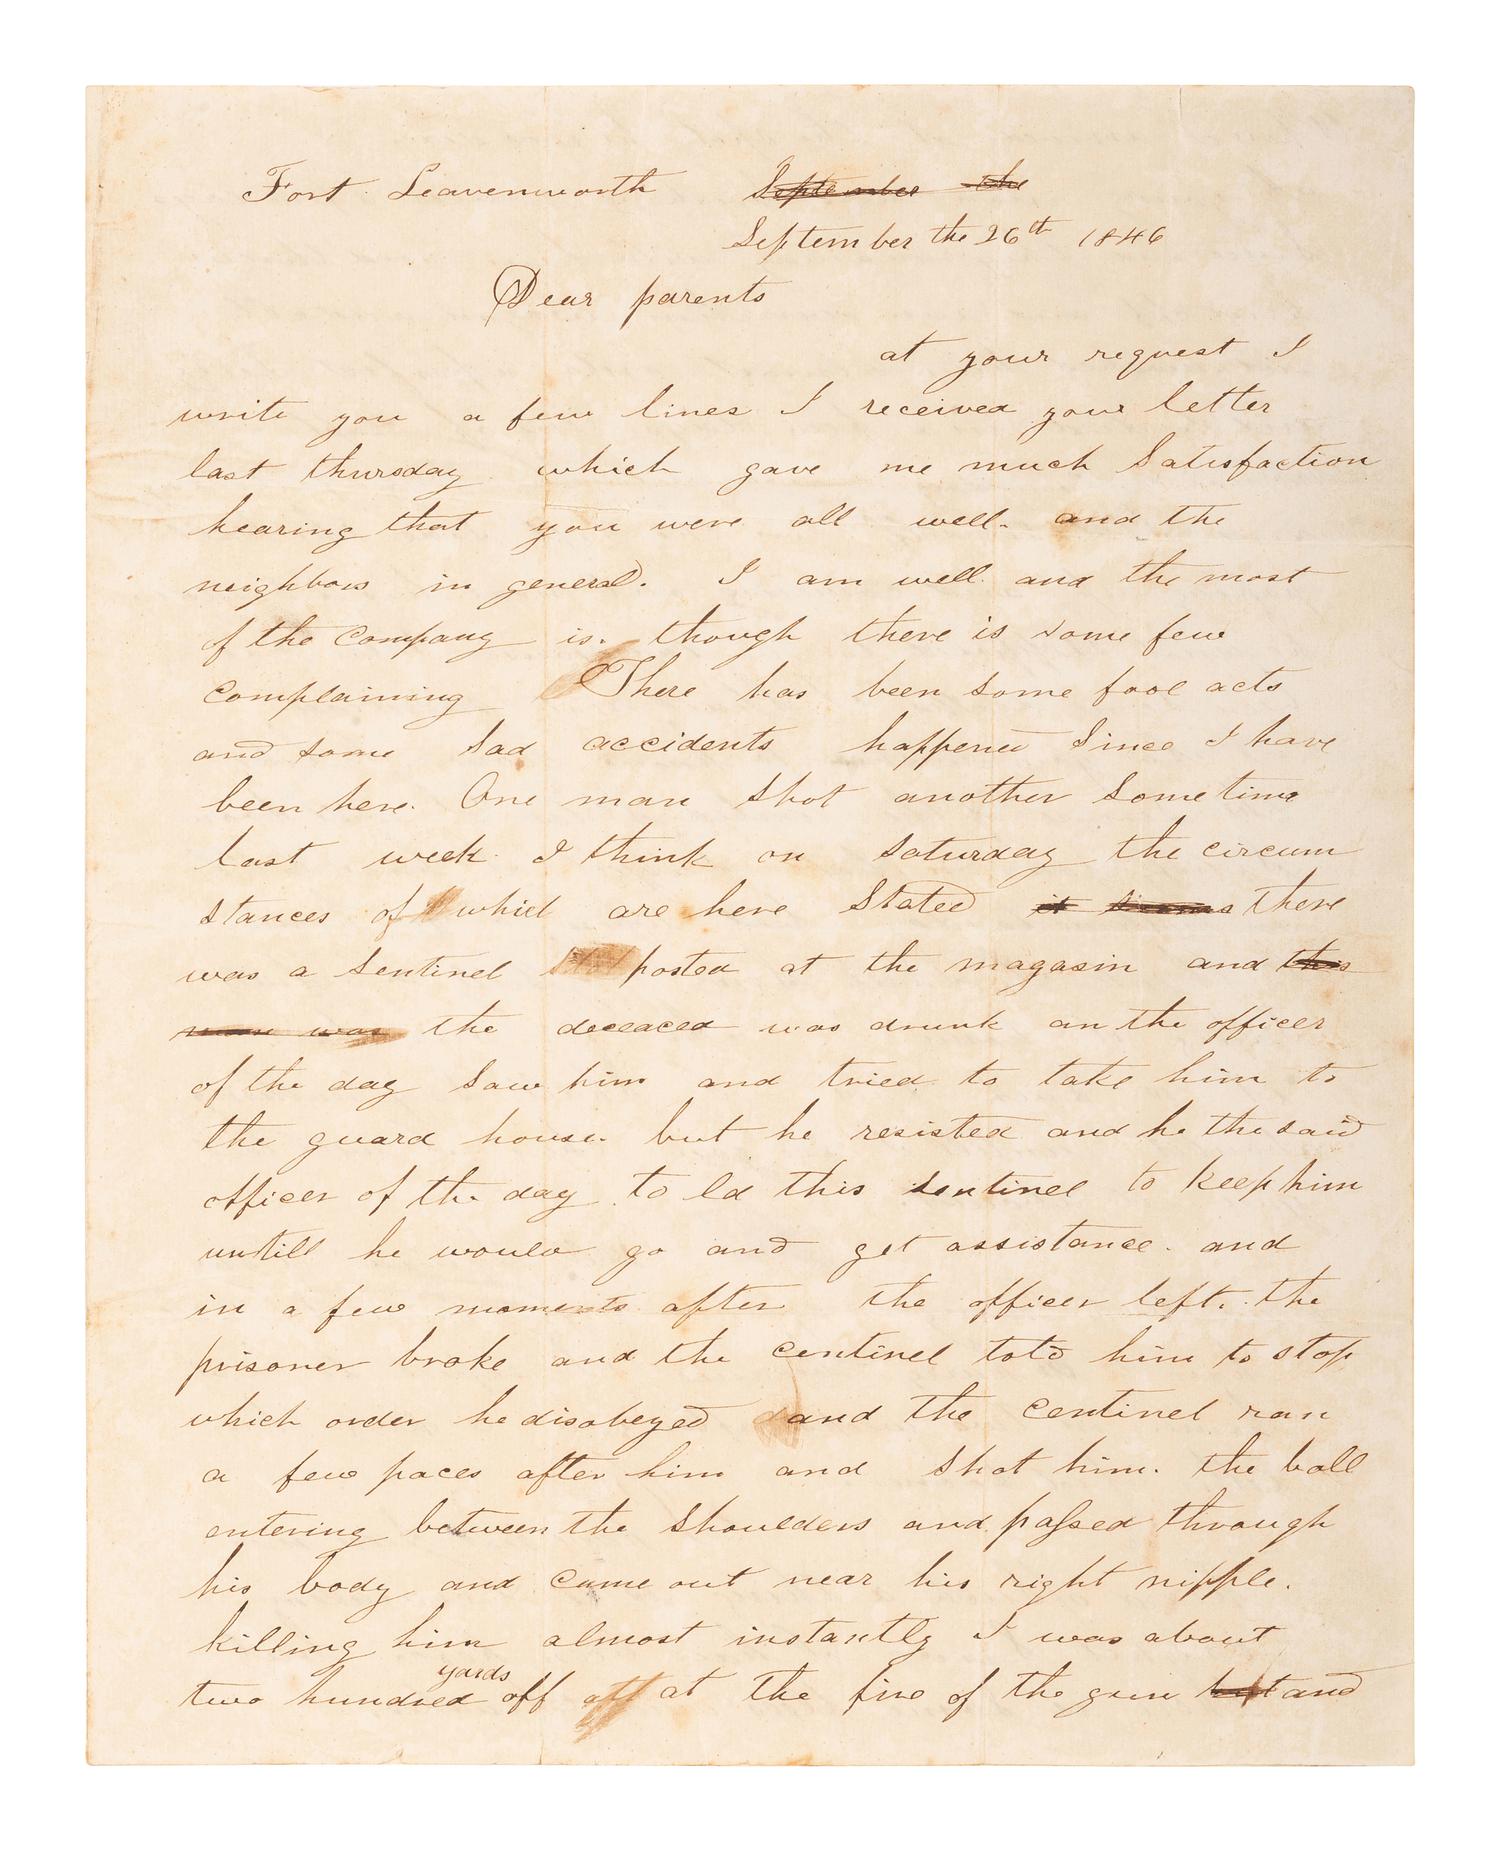 Fort Leavenworth September the
September the 26th 1846
Dear parents
at your request I
write you a few lines I received your letter
last thursday which gave me much Satisfaction
hearing that you were all well. and the
neighbors in general. I am well and the most
of the Company is. though there is some few
complaining There has been some fool acts
and some sad accidents happened Since I have
been here. One man shot another sometime
last week I think on saturday the circum
stances of which are here Stated it seems there
was a Sentinel posted at the magasin and this
man was the deceaced was drunk an the officer
of the day saw him and tried to take him to
the guard house. but he resisted and he the said
officer of the day to ld this sentinel to keep him
untill he would go and get assistance. and
in a few moments after the officer left. the
prisoner broke and the centinel told him to stop
which order he disobeyed and the centinel ran
a few paces after him and shot him. the ball
entering between the shoulders and passed through
his body and came out near his right nipple.
killing him almost instantly I was about
yards
two hundred off off at the fire of the gun but and